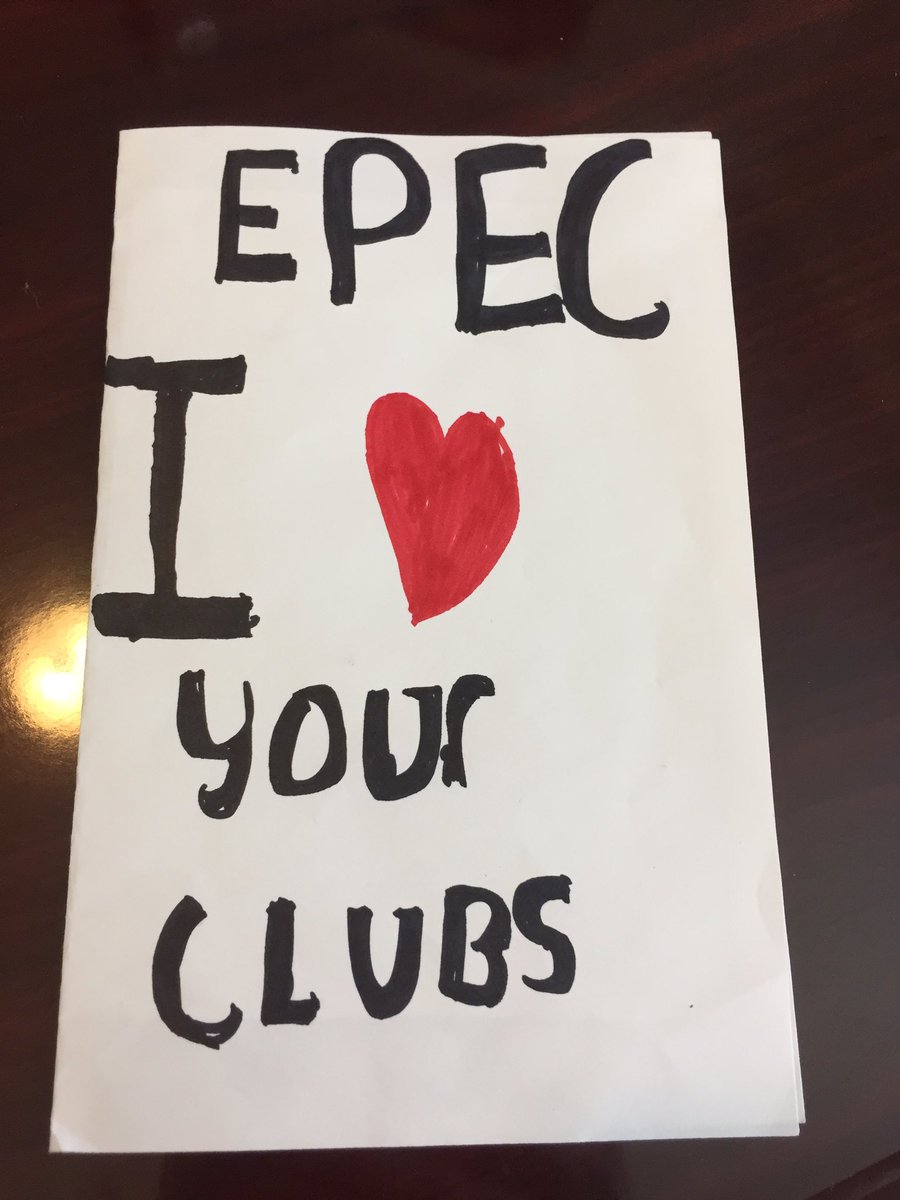 EPEC
I ❤
your
CLUBS